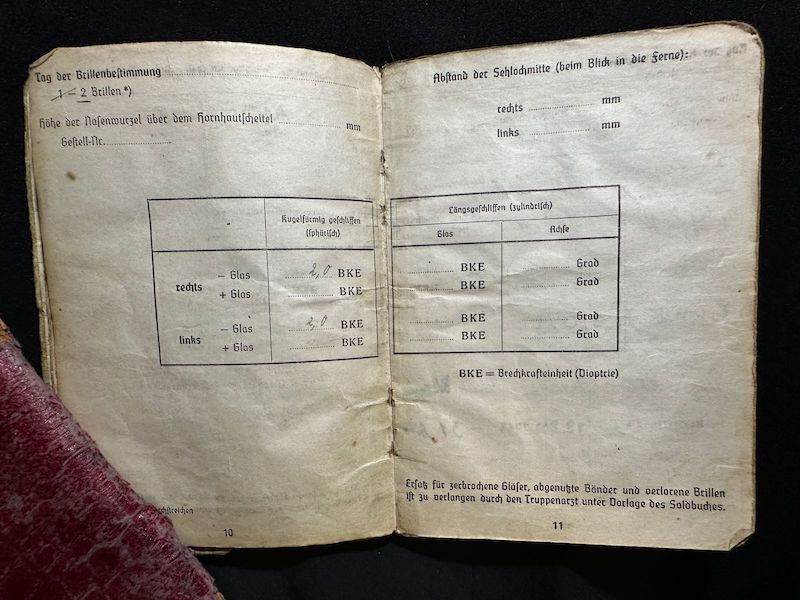 Tag der Brillenbestimmung
1 = 2 Brillen *)
Höhe der Nasenwurzel über dem Hornhautscheitel mm
Gestell-Nr.
Kugelförmig geschliffen
(sphärisch)
rechts
– Glas 2,0 BKE
+ Glas BKE
links
– Glas 2,0 BKE
+ Glas BKE
10
Abstand der Sehlochmitte (beim Blick in die Ferne):
rechts mm
links mm
Längsgeschliffen (zylindrisch)
Glas Achse
BKE Grad
BKE Grad
BKE Grad
BKE Grad
BKE = Brechkrafteinheit (Dioptrie)
Ersatz für zerbrochene Gläser, abgenutzte Bänder und verlorene Brillen
ist zu verlangen durch den Truppenarzt unter Vorlage des Soldbuches.
11